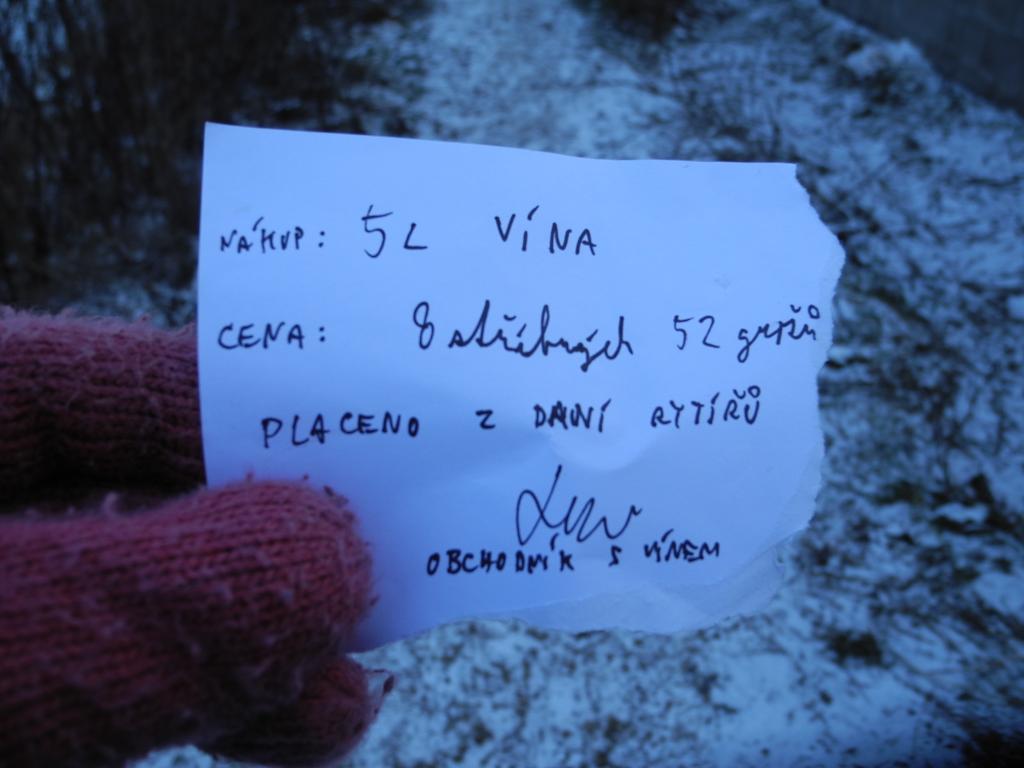 NÁKUP: 5L VÍNA
CENA: 8 stříbrných 52 grošů
PLACENO Z DANÍ RYTÍŘŮ
OBCHODNÍK S VÍNEM